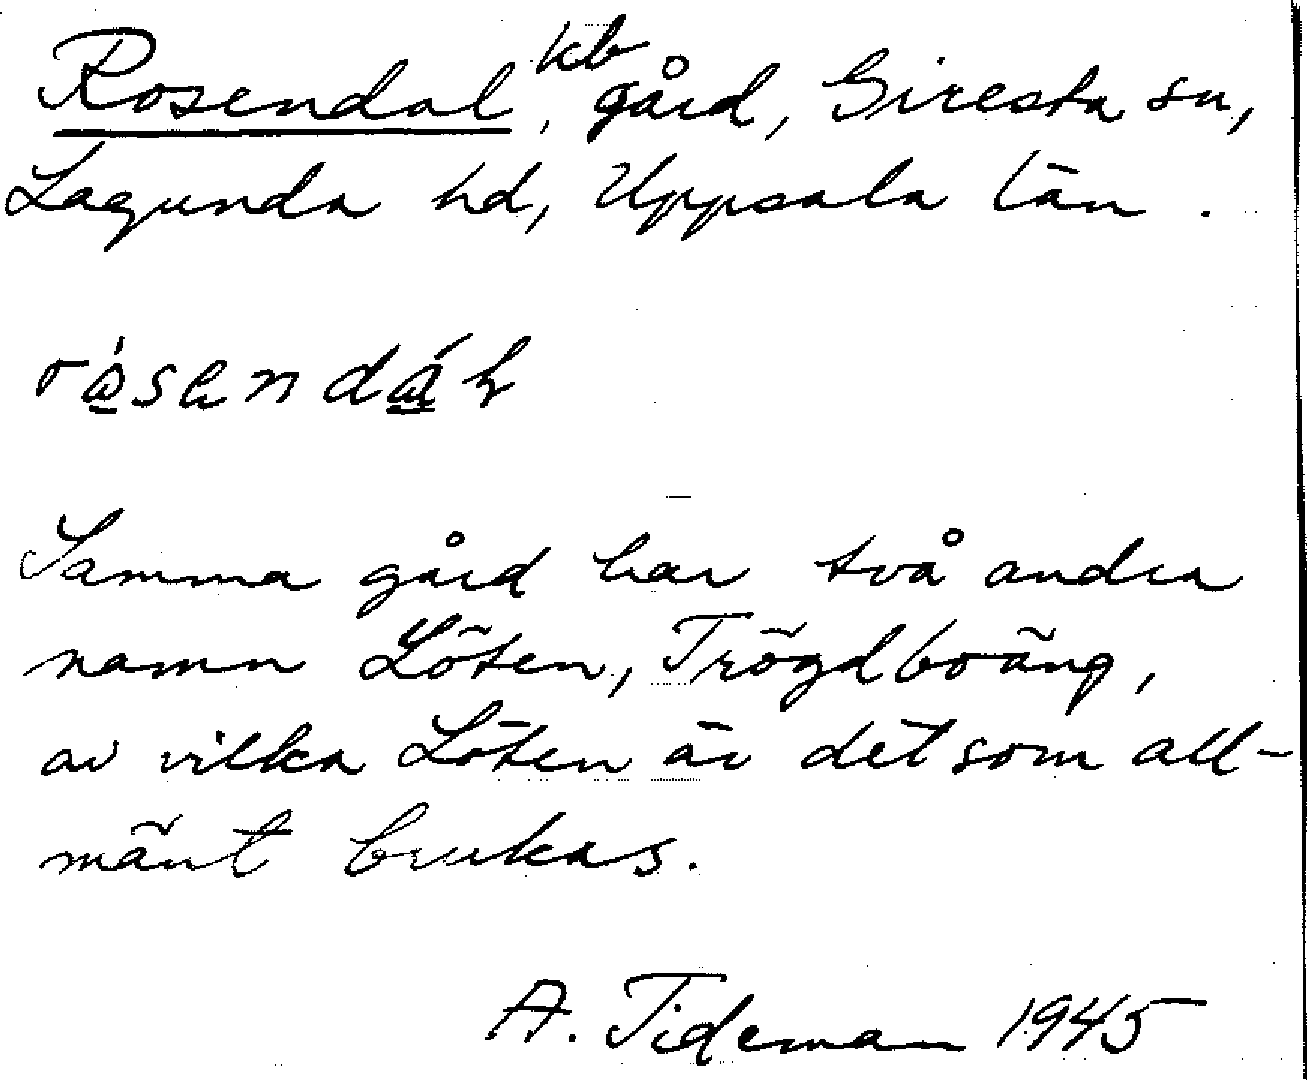 Rosendal kb, gård, Giresta sn,
Lagunda hd, Uppsala län.
Samma gård har två andra
namn Löten, Trögdboäng,
av vilka Löten är det som all-
mänt brukas.
A. Tideman 1945